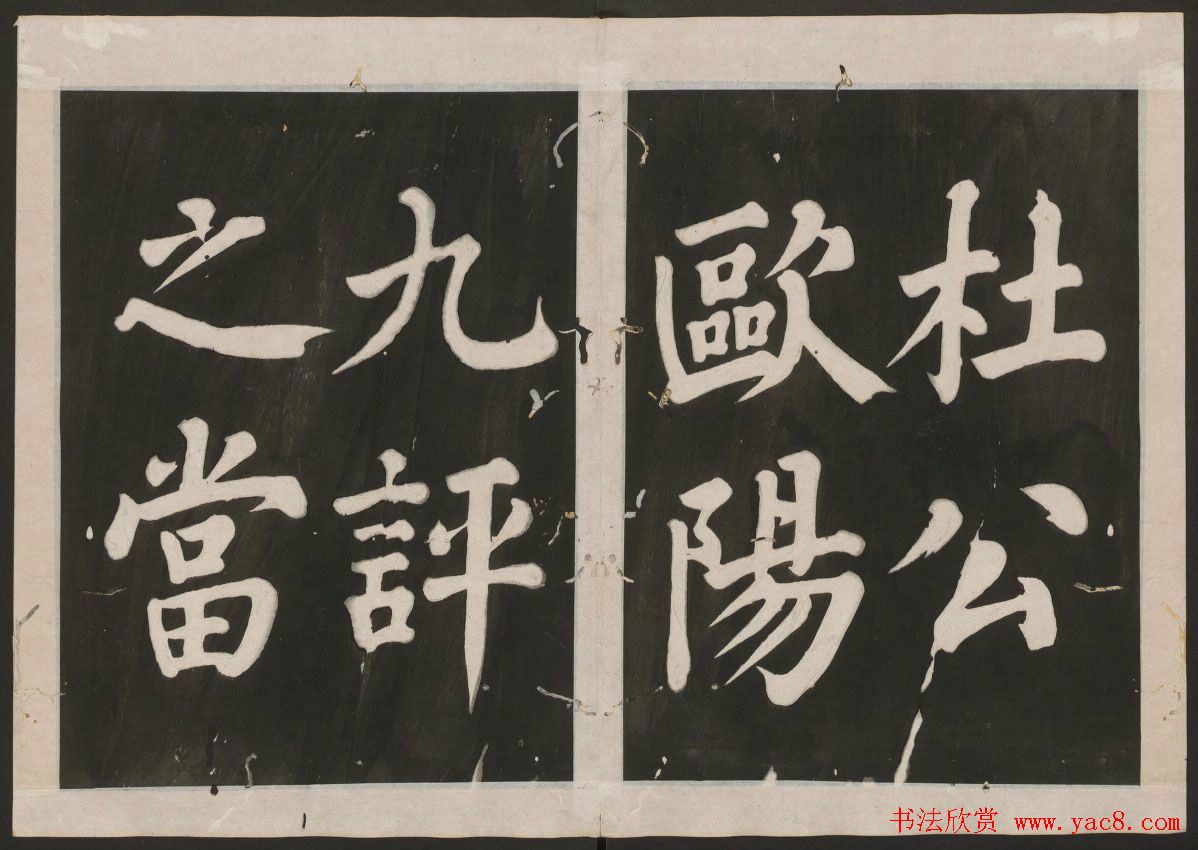 杜公
歐陽
九評
之當
书法欣赏 www.yac8.com